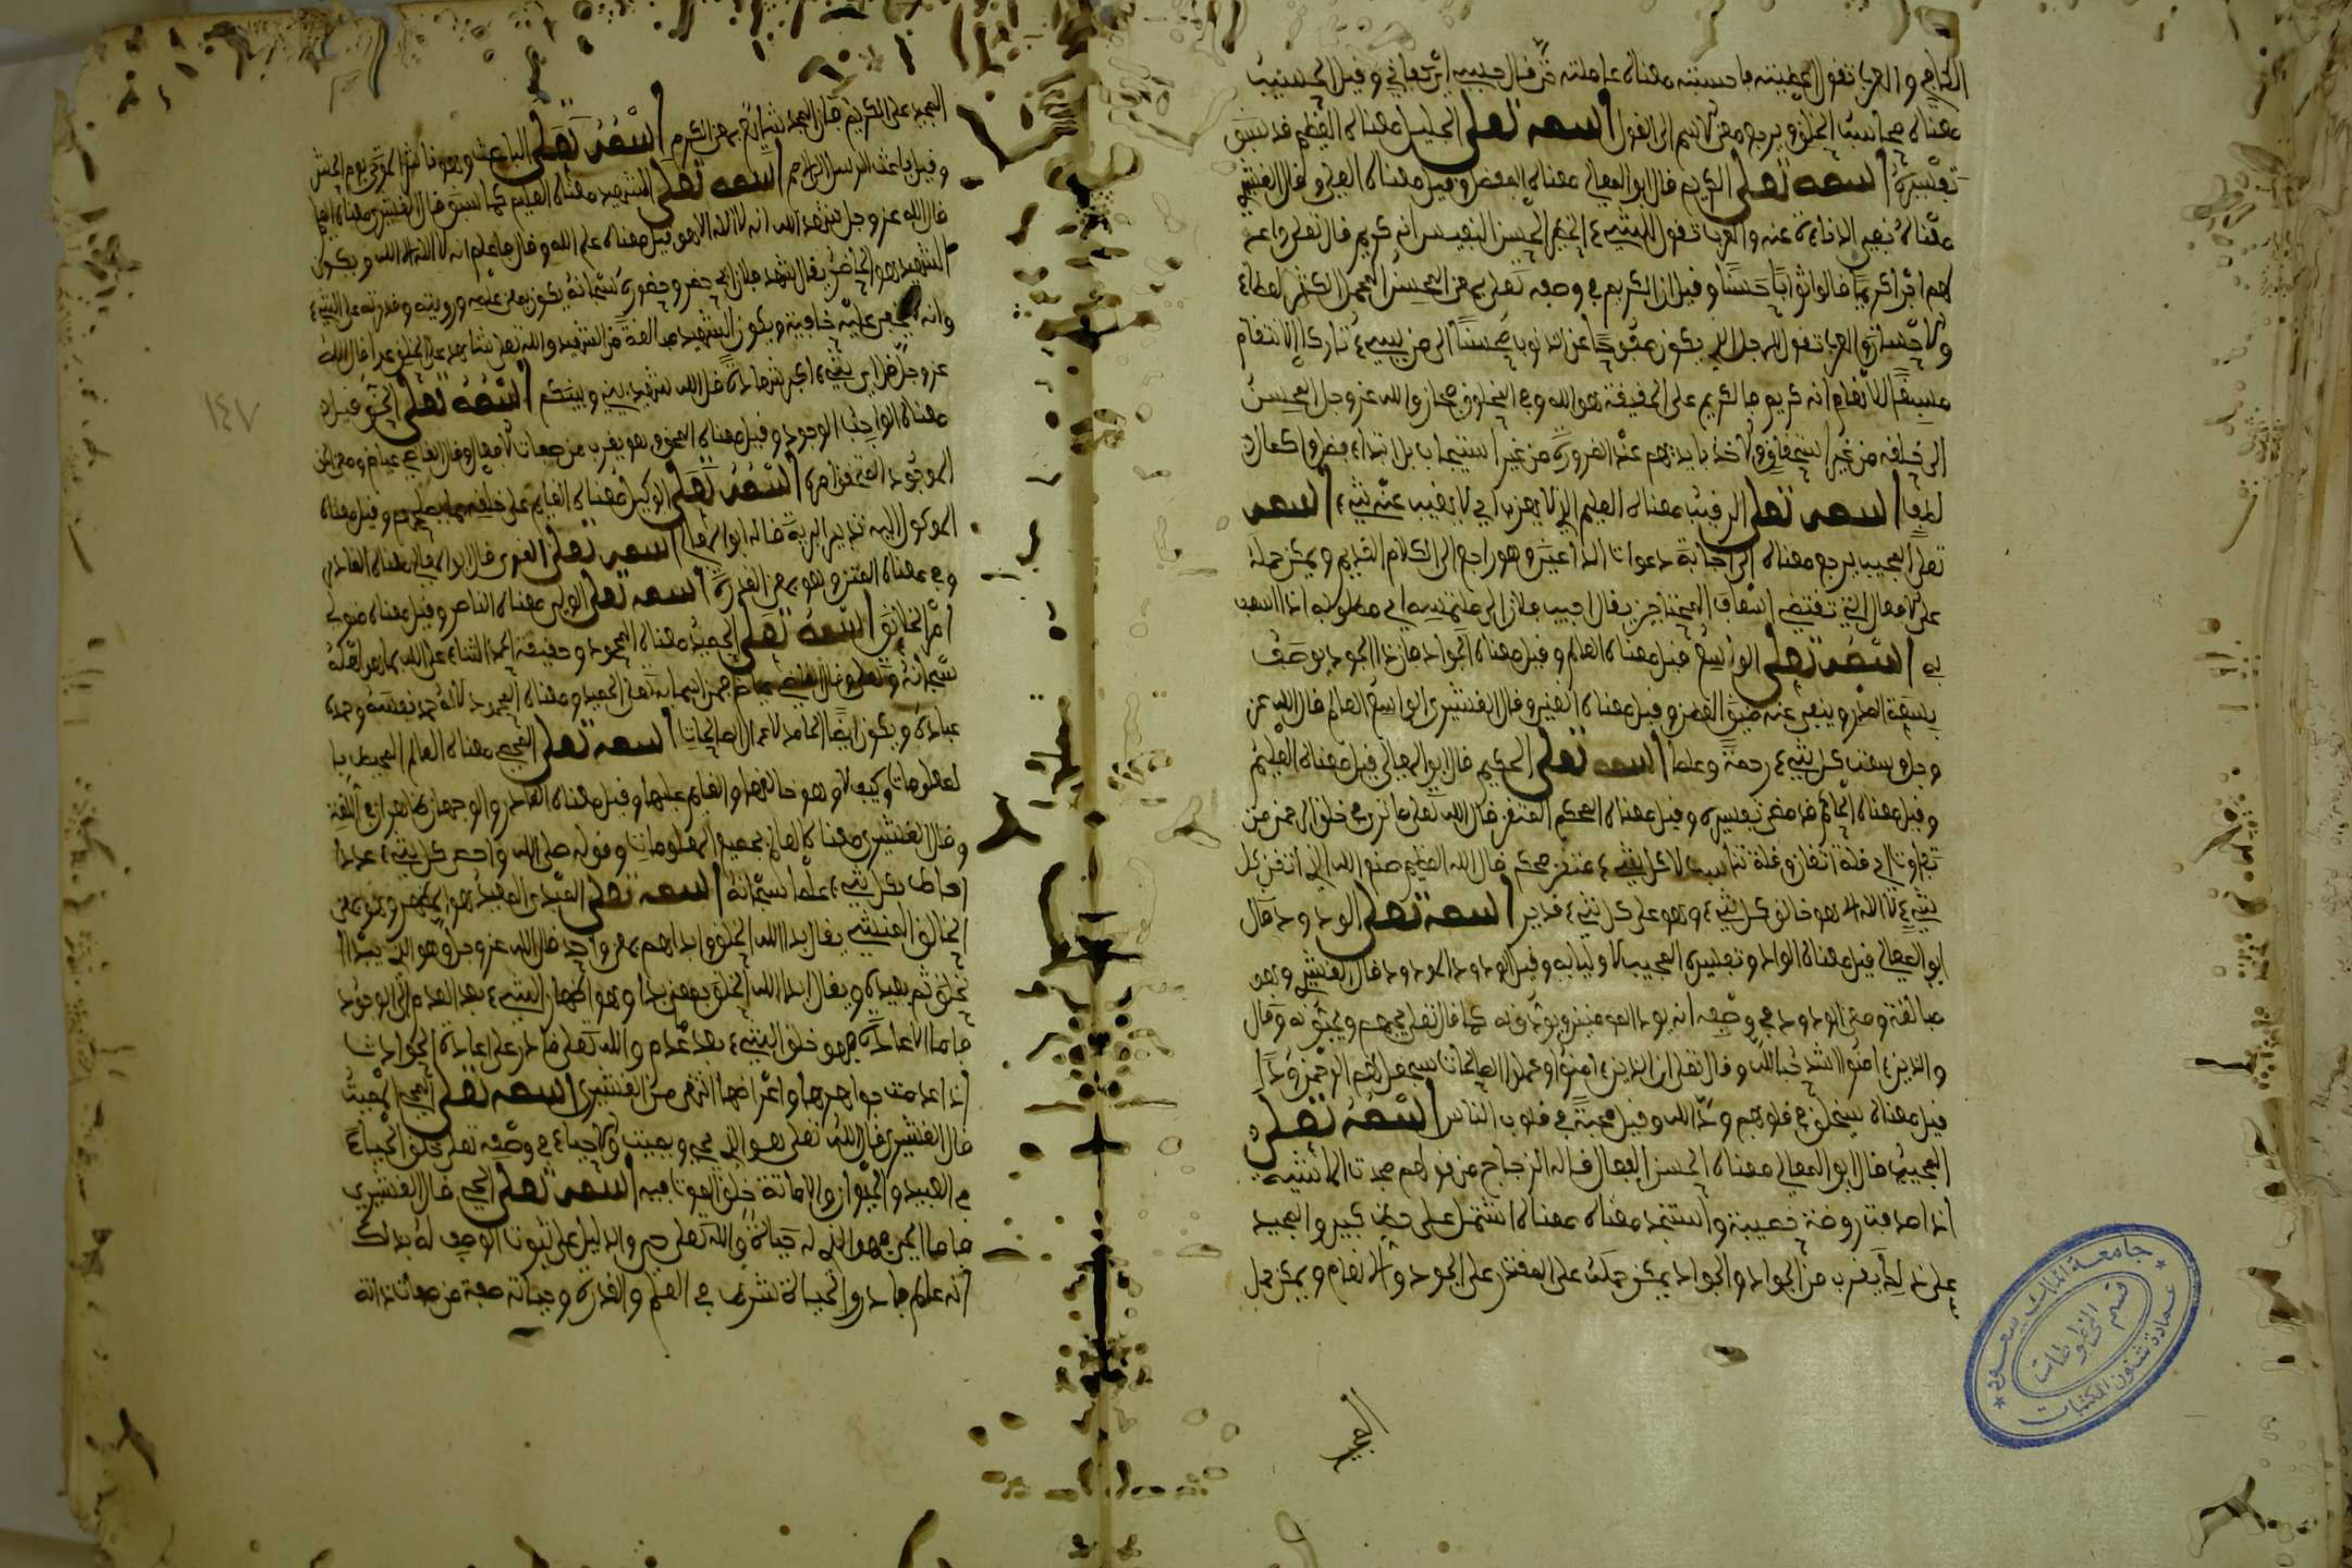 معناه محاسب الخلق ويرجع معنى الاسم الى القول اسمه تعلى الجليل معناه العظيم قد سبق
تفسيره اسمه تعلى الكريم قال ابو المعالي معناه المفضل وقيل معناه العلي وقال القشيري
معناه نفي الدناءة عنه والعرب تقول للشيء الخطير الحسن النفيس انه كريم قال تعلى واعد
لهم اجرا كريما قالوا ثوابا حسنا وقيل ان الكريم في وصفه تعلى بمعنى المحسن المجمل الكثير العطاء
والاحسان والعرب تقول للرجل الذي يكون صفوحا عن الذنوب محسنا الى من يسيء تاركا للانتقام
مسبغا للانعام انه كريم فالكريم على الحقيقة هو الله وفي المخلوق مجاز والله عز وجل المحسن
الى خلقه من غير استحقاق والاخذ بايديهم عند الضرورة من غير استيجاب بل ابتداء فضل وكمال
لطف اسمه تعلى الرقيب معناه العليم الذي لا يعزب اي لا يغيب عنه شيء اسمه
تعلى المجيب يرجع معناه الى اجابة دعوات الداعين وهو راجع الى الكلام القديم ويمكن حمله
على الافعال التي تقتضي اسعاف المحتاجين يقال اجيب فلان الى ملتمسه اي مطلوبه اذا اسعف
به اسمه تعلى الواسع قيل معناه العالم وقيل معناه الجواد فان ذا الجود يوصف
بسعة الصدر وينفى عنه ضيق العطن وقيل معناه الغني وقال القشيري الواسع العالم قال الله عز
وجل وسعت كل شيء رحمة وعلما اسمه تعلى الحكيم قال ابو المعالي قيل معناه العليم
وقيل معناه الحاكم قد مضى تفسيره وقيل معناه المحكم المتقن قال الله تعلى ما ترى في خلق الرحمن من
تفاوت اي قلة اتقان وقلة تناسب لا كل شيء متقن محكم قال الله العظيم صنع الله الذي اتقن كل
شيء لا اله الا هو خالق كل شيء وهو على كل شيء قدير اسمه تعلى الودود قال
ابو المعالي قيل معناه الواد وتفسيره المحب لاوليائه وقيل الودود المودود قال القشيري وهو
مبالغة ومعنى الودود في وصفه انه يود المومنين ويودونه كما قال تعلى يحبهم ويحبونه وقال
والذين امنوا اشد حبا لله وقال تعلى ان الذين امنوا وعملوا الصالحات سيجعل لهم الرحمن ودا
قيل معناه سيخلق في قلوبهم ود الله وقيل محبة في قلوب الناس اسمه تعلى
المجيد قال ابو المعالي معناه الحسن الفعال قاله الزجاج من قولهم مجدت الماشية
اذا صدفت روضة خصيبة واستنجد معناه اشتمل على خير كثير والمجيد
على ذلك يقرب من الجواد والجواد يمكن حمله على المقتدر على الجود والانعام ويمكن حمل
المجيد
المجيد على الكريم فان المجد ينبئ عن معنى الكرم اسمه تعلى الباعث وهو ناشر الموتى يوم الحشر
وقيل باعث الرسل الى الامم اسمه تعلى الشهيد معناه العليم كما سبق قال القشيري معناه العالم
قال الله عز وجل شهد الله انه لا اله الا هو قيل معناه علم الله وقال فاعلم انه لا اله الا الله ويكون
الشهيد هو الحاضر يقال شهد فلان اي حضر وحضوره سبحانه يكون بمعنى علمه ورويته وقدرته على الشيء
وانه لا يخفى عليه خافية ويكون الشهيد مبالغة من الشهيد والله تعلى شاهد على الخلق غدا قال الله
عز وجل قل اي شيء اكبر شهادة قل الله شهيد بيني وبينكم اسمه تعلى الحق قيل
معناه الواجب الوجود وقيل معناه المحق وهو يقرب من صفات الافعال وقال القاضي عياض ومعنى الحق
الموجود المتحقق امره اسمه تعلى الوكيل معناه القائم على خلقه بما يصلحهم وقيل معناه
الموكول اليه تدبير البرية قاله ابو المعالي اسمه تعلى القوي قال ابو المعالي معناه القادر
وفي معناه المتين وهو بمعنى القدرة اسمه تعلى الولي معناه الناصر وقيل معناه متولي
امر الخلائق اسمه تعلى الحميد معناه المحمود وحقيقة الحمد الثناء على الله بما هو اهله
سبحانه وتعلى وقال القاضي عياض فمن اسمائه تعلى الحميد ومعناه المحمود لانه حمد نفسه وحمده
عباده ويكون ايضا الحامد لاعمال الصالحات اسمه تعلى المحصي معناه العالم المحيط با
لمعلومات وكيف لا وهو خالقها والقائم عليها وقيل معناه القادر والوجهان ظاهران في اللغة
وقال القشيري معناه العالم بجميع المعلومات وقوله صلى الله واحصى كل شيء عددا
احاط بكل شيء علما سبحانه اسمه تعلى المبدئ المعيد هو المظهر وهو بمعنى
الخالق المنشئ يقال بدا الله الخلق وابداهم بمعنى واحد قال الله عز وجل وهو الذي يبدا
الخلق ثم يعيده ويقال ابدا الله الخلق بمعنى بدا وهو اظهار الشيء بعد العدم الى الوجود
فاما الاعادة فهو خلق الشيء بعد عدم والله تعلى قادر على اعادة الحوادث
اذا عدمت جواهرها واعراضها انتهى من القشيري اسمه تعلى المحيي المميت
قال القشيري قال الله تعلى هو الذي يحيي ويميت والاحياء في وصفه تعلى خلق الحياة
في العبيد والحيوان والاماتة خلق الموت فيه اسمه تعلى الحي قال القشيري
فاما الحي فهو الذي له حياة والله تعلى حي والدليل على ثبوت الوصف له بذلك
انه عالم قادر والحياة شرط في العلم والقدرة وحياته صفة من صفات ذاته
١٤٧
جامعة الملك سعود
عمادة شئون المكتبات
قسم المخطوطات